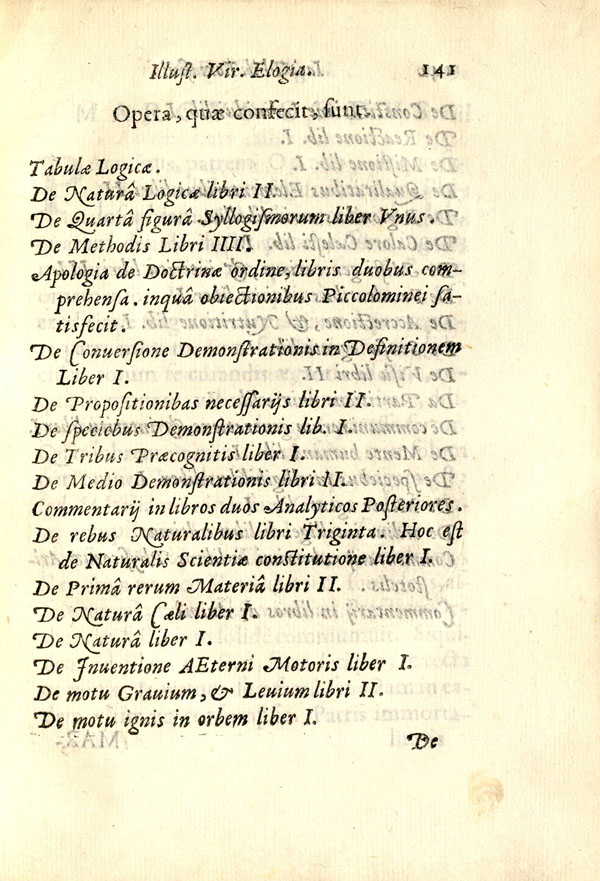 Illuſt. Vir. Elogia. 141
Opera, quæ confecit, ſunt.
Tabulæ Logicæ.
De Naturâ Logicæ libri II.
De Quartâ figurâ Syllogiſmorum liber Vnus.
De Methodis Libri IIII.
Apologia de Doctrinæ ordine, libris duobus com-
prehenſa. inquâ obiectionibus Piccolominei ſa-
tisfecit.
De Conuerſione Demonſtrationis in Definitionem
Liber I.
De Propoſitionibas neceſſarijs libri II.
De ſpeciebus Demonſtrationis lib. I.
De Tribus Præcognitis liber I.
De Medio Demonſtrationis libri II.
Commentarij in libros duos Analyticos Poſteriores.
De rebus Naturalibus libri Triginta. Hoc eſt
de Naturalis Scientiæ conſtitutione liber I.
De Primâ rerum Materiâ libri II.
De Naturâ Cæli liber I.
De Naturâ liber I.
De Inuentione AEterni Motoris liber I.
De motu Grauium, & Leuium libri II.
De motu ignis in orbem liber I.
De